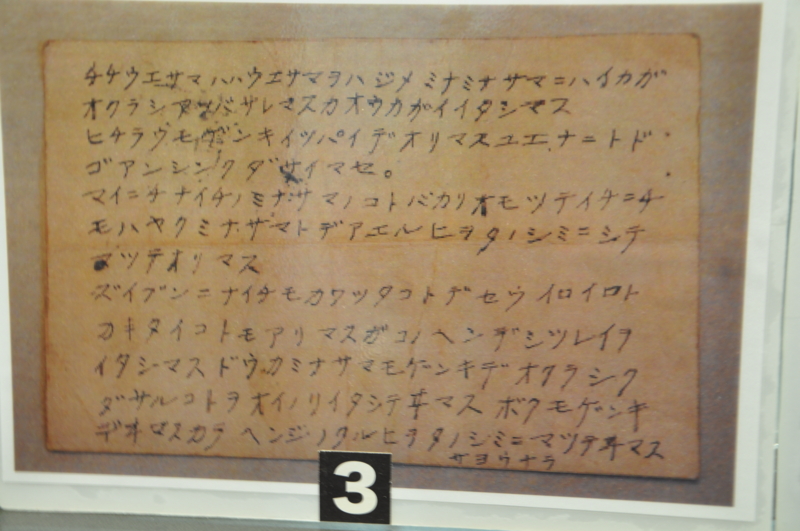 チチウエサマハハウエサマヲハジメミナミナサマニハイカガ
オクラシアソバサレマスカオウカガイイタシマス
ヒチラヴモゲンキイツパイデオリマスユエナニトド
ゴアンシンクダサイマセ。
マイニチナイチノミナサマノコトバカリオモツテイチニチ
モハヤクミナサマトデアエルヒヲタノシミニシテ
マツテオリマス
ズイブンニナイチモカワツタコトデセウイロイロト
カキタイコトモアリマスガコノヘンデシツレイヲ
イタシマスドウカミナサマモゲンキデオクラシク
ダサルコトヲオイノリイタシテヰマスボクモゲンキ
デヰマスカラヘンジノクルヒヲタノシミニマツテヰマス
サヨウナラ
3